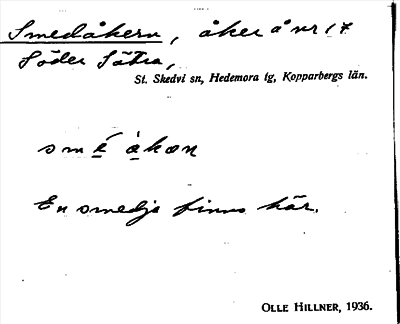 Smedåkern, åker å nr 17
Söder Sätra,
St. Skedvi sn, Hedemora tg, Kopparbergs län.
smé̱ å̱kæn
En smedja finns här.
OLLE HILLNER, 1936.